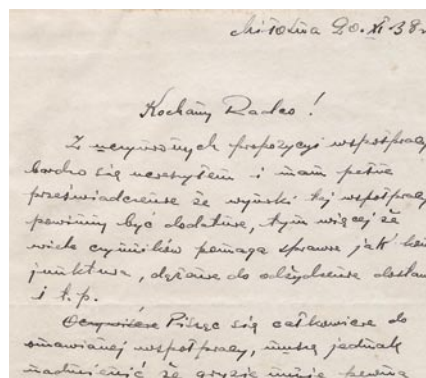 Miłosna 20.XI.38r
Kochany Radco!
Z propozycji współpracy
bardzo się ucieszyłem i mam pełne
przeświadczenie że wyniki tej współpracy
powinny być dodatnie, tym więcej że
wiele czynników pomaga sprawie jak
junktura, dążenie do odżydzenia dostaw
i t.p.
Pisząc się całkowicie do
omawianej współpracy, muszę jednak
nadmienić że gryzie mnie pewna